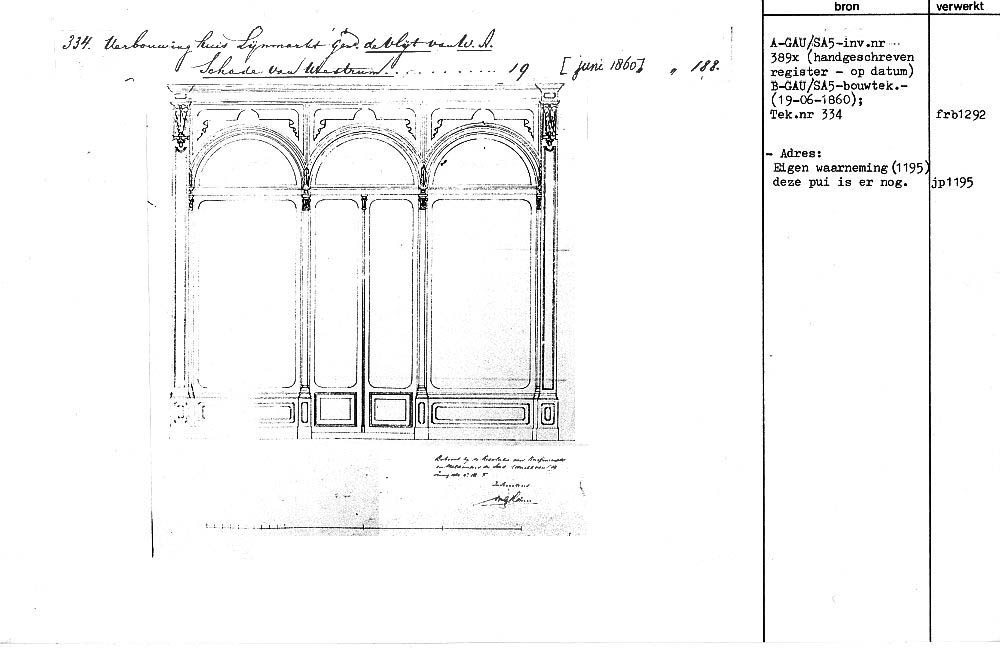 334. Verbouwing huis Lijnmarkt Gen. de Vlijt van W. A.
Schade van Westrum. . . . . . . . . . . 19 [juni 1860] „ 188.
bron
verwerkt
A-GAU/SA5-inv.nr
389x (handgeschreven
register - op datum)
B-GAU/SA5-bouwtek.-
(19-06-1860);
Tek.nr 334
frb1292
- Adres:
Eigen waarneming (1195)
deze pui is er nog.
jp1195
Behoort bij de Resolutie van Burgemeester
en Wethouders der Stad